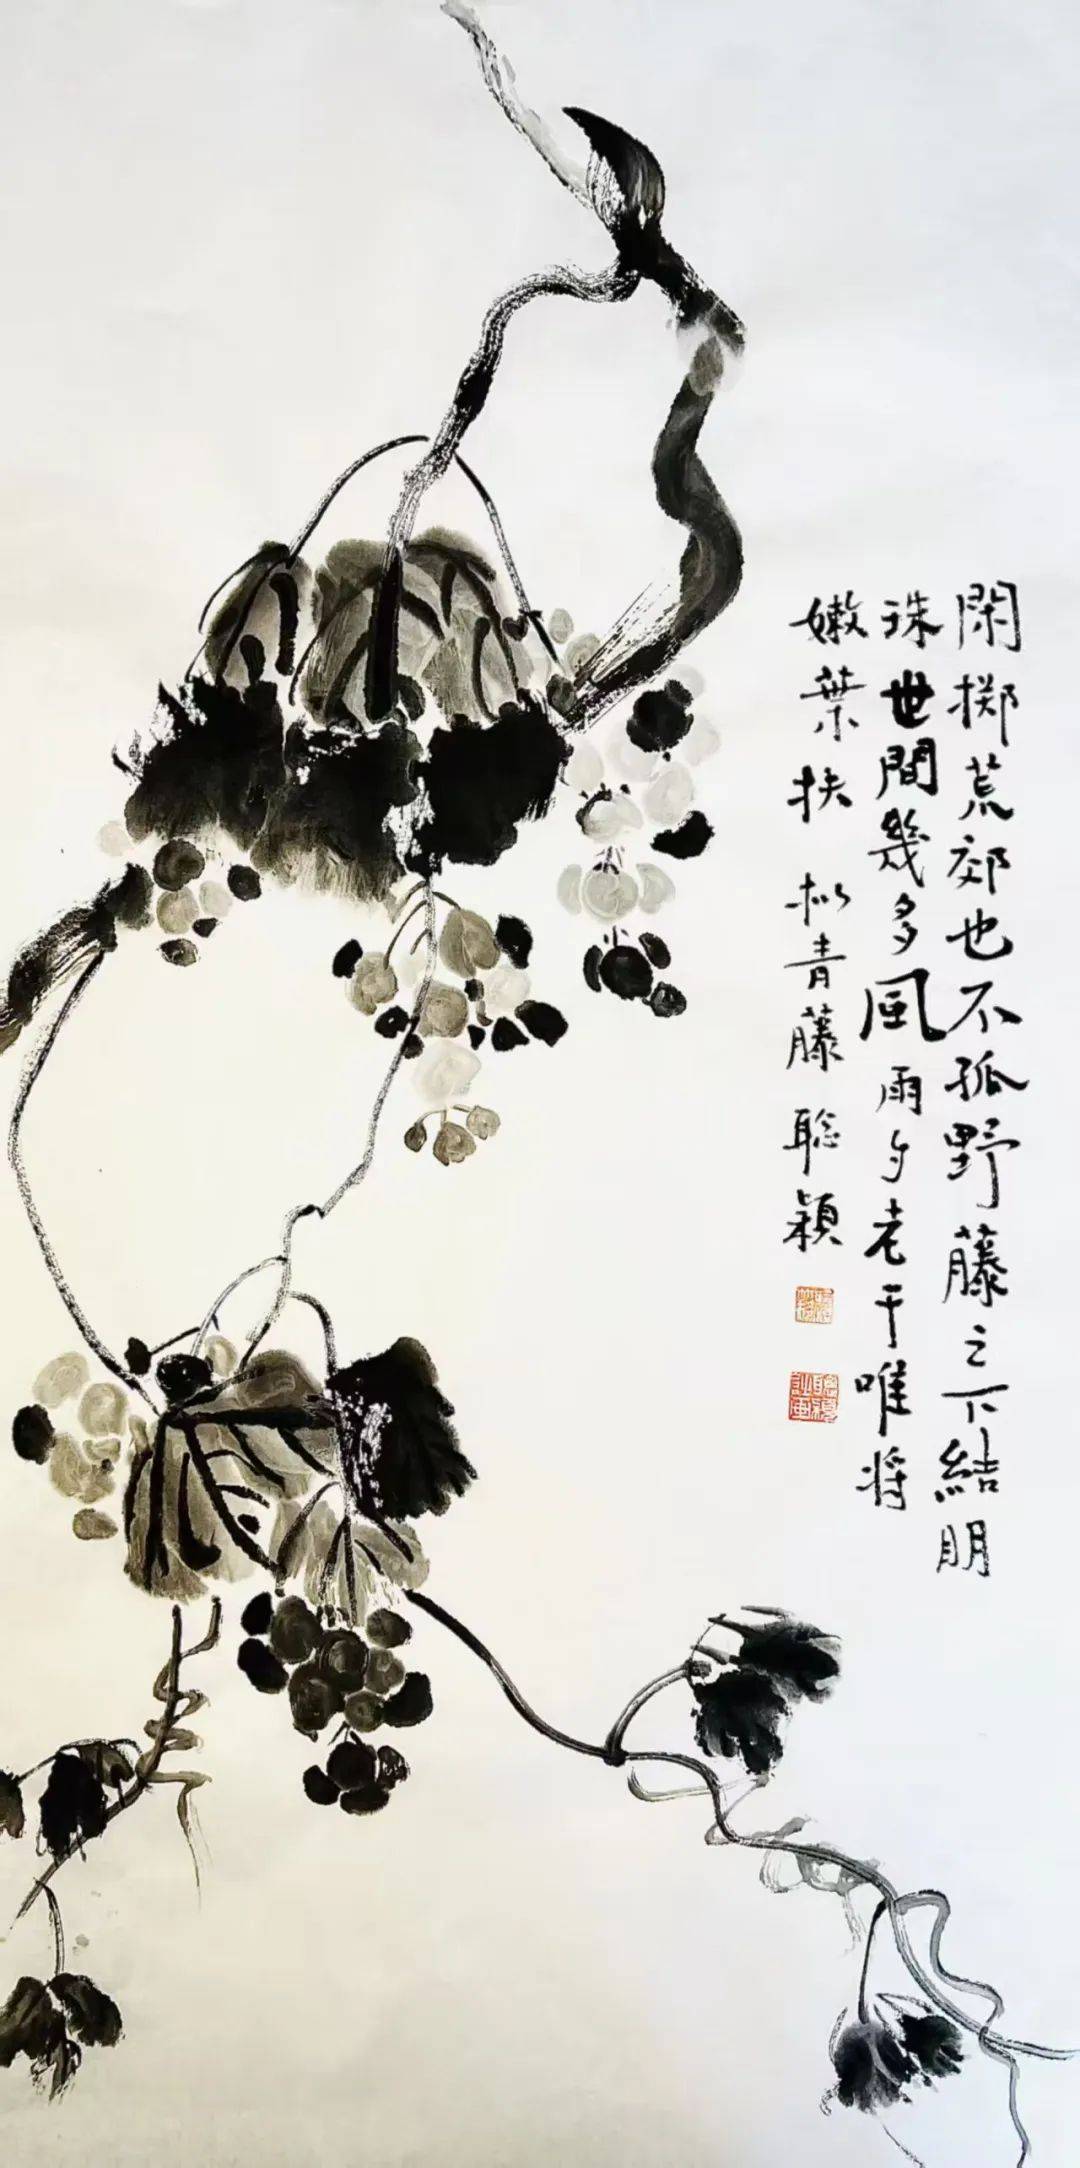 閑擲荒郊也不孤野藤之下結明
珠世間幾多風雨夕老干唯將
嫩葉扶 拟青藤 聪颖